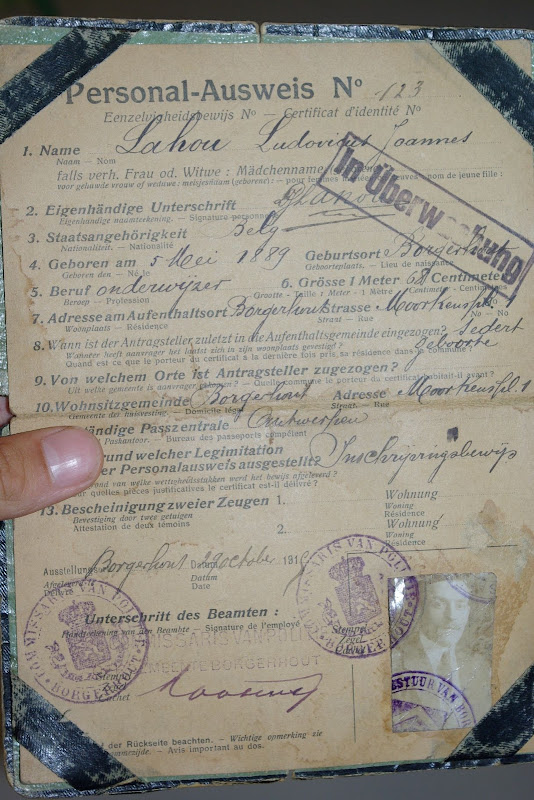 Personal-Ausweis Nº 123
Eenzelvigheidsbewijs Nº — Certificat d'identité Nº
1. Name Lahou Ludovicus Joannes
Naam — Nom
falls verh. Frau od. Witwe : Mädchenname
voor gehuwde vrouw of weduwe : meisjesnaam (geborene) : — pour femmes nom de jeune fille :
In Überwachung
2. Eigenhändige Unterschrift
Eigenhandige naamteekening. — Signature personnelle
3. Staatsangehörigkeit Belg
Nationaliteit. — Nationalité
4. Geboren am 5 Mei 1889 Geburtsort Borgerhout
Geboren den — Né le Geboorteplaats. — Lieu de naissance
5. Beruf onderwijzer 6. Grösse 1 Meter 68 Centimeter
Beroep — Profession Grootte - Taille : 1 Meter - 1 Mètre Centimeter - Centimètres
7. Adresse am Aufenthaltsort Borgerhout Strasse Moorkenspl. 1
Woonplaats — Résidence Straat — Rue No — No
8. Wann ist der Antragsteller zuletzt in die Aufenthaltsgemeinde eingezogen? Sedert
Wanneer heeft aanvrager het laatst zich in zijn woonplaats gevestigd? geboorte
Quand est ce que le porteur du certificat a la dernière fois pris sa résidence dans la commune?
9. Von welchem Orte ist Antragsteller zugezogen?
Uit welke gemeente is aanvrager gekomen? — Quelle commune le porteur du certificat habitait-il avant?
10. Wohnsitzgemeinde Borgerhout Adresse Moorkenspl. 1
Gemeente der huisvesting. Domicile légal Straat. — Rue
ständige Passzentrale Antwerpen
Paskantoor. — Bureau des passeports compétent
rund welcher Legitimation Inschrijvingsbewijs
er Personalausweis ausgestellt?
rond van welke wettigheidsstukken werd het bewijs afgeleverd?
ur quelles pièces justificatives le certificat est-il délivré?
13. Bescheinigung zweier Zeugen 1. Wohnung
Bevestiging door twee getuigen Woning
Attestation de deux témoins Résidence
2. Wohnung
Woning
Résidence
Ausstellungs Borgerhout Datum 29 October 191
Afgelever Datum
Délivré Date
Unterschrift des Beamten :
Handteekening van den Beambte — Signature de l'employé
Stempel
Zegel
Cachet
MISSARIS VAN POLI
EMEENTE BORGERHOUT
COMMISSARIS VAN POLITIE
BORGERHOUT
COMMISSARIS VAN POLITIE
BORGERHOUT
BESTUUR VAN BO
der Rückseite beachten. — Wichtige opmerking zie
ommezijde. — Avis important au dos.